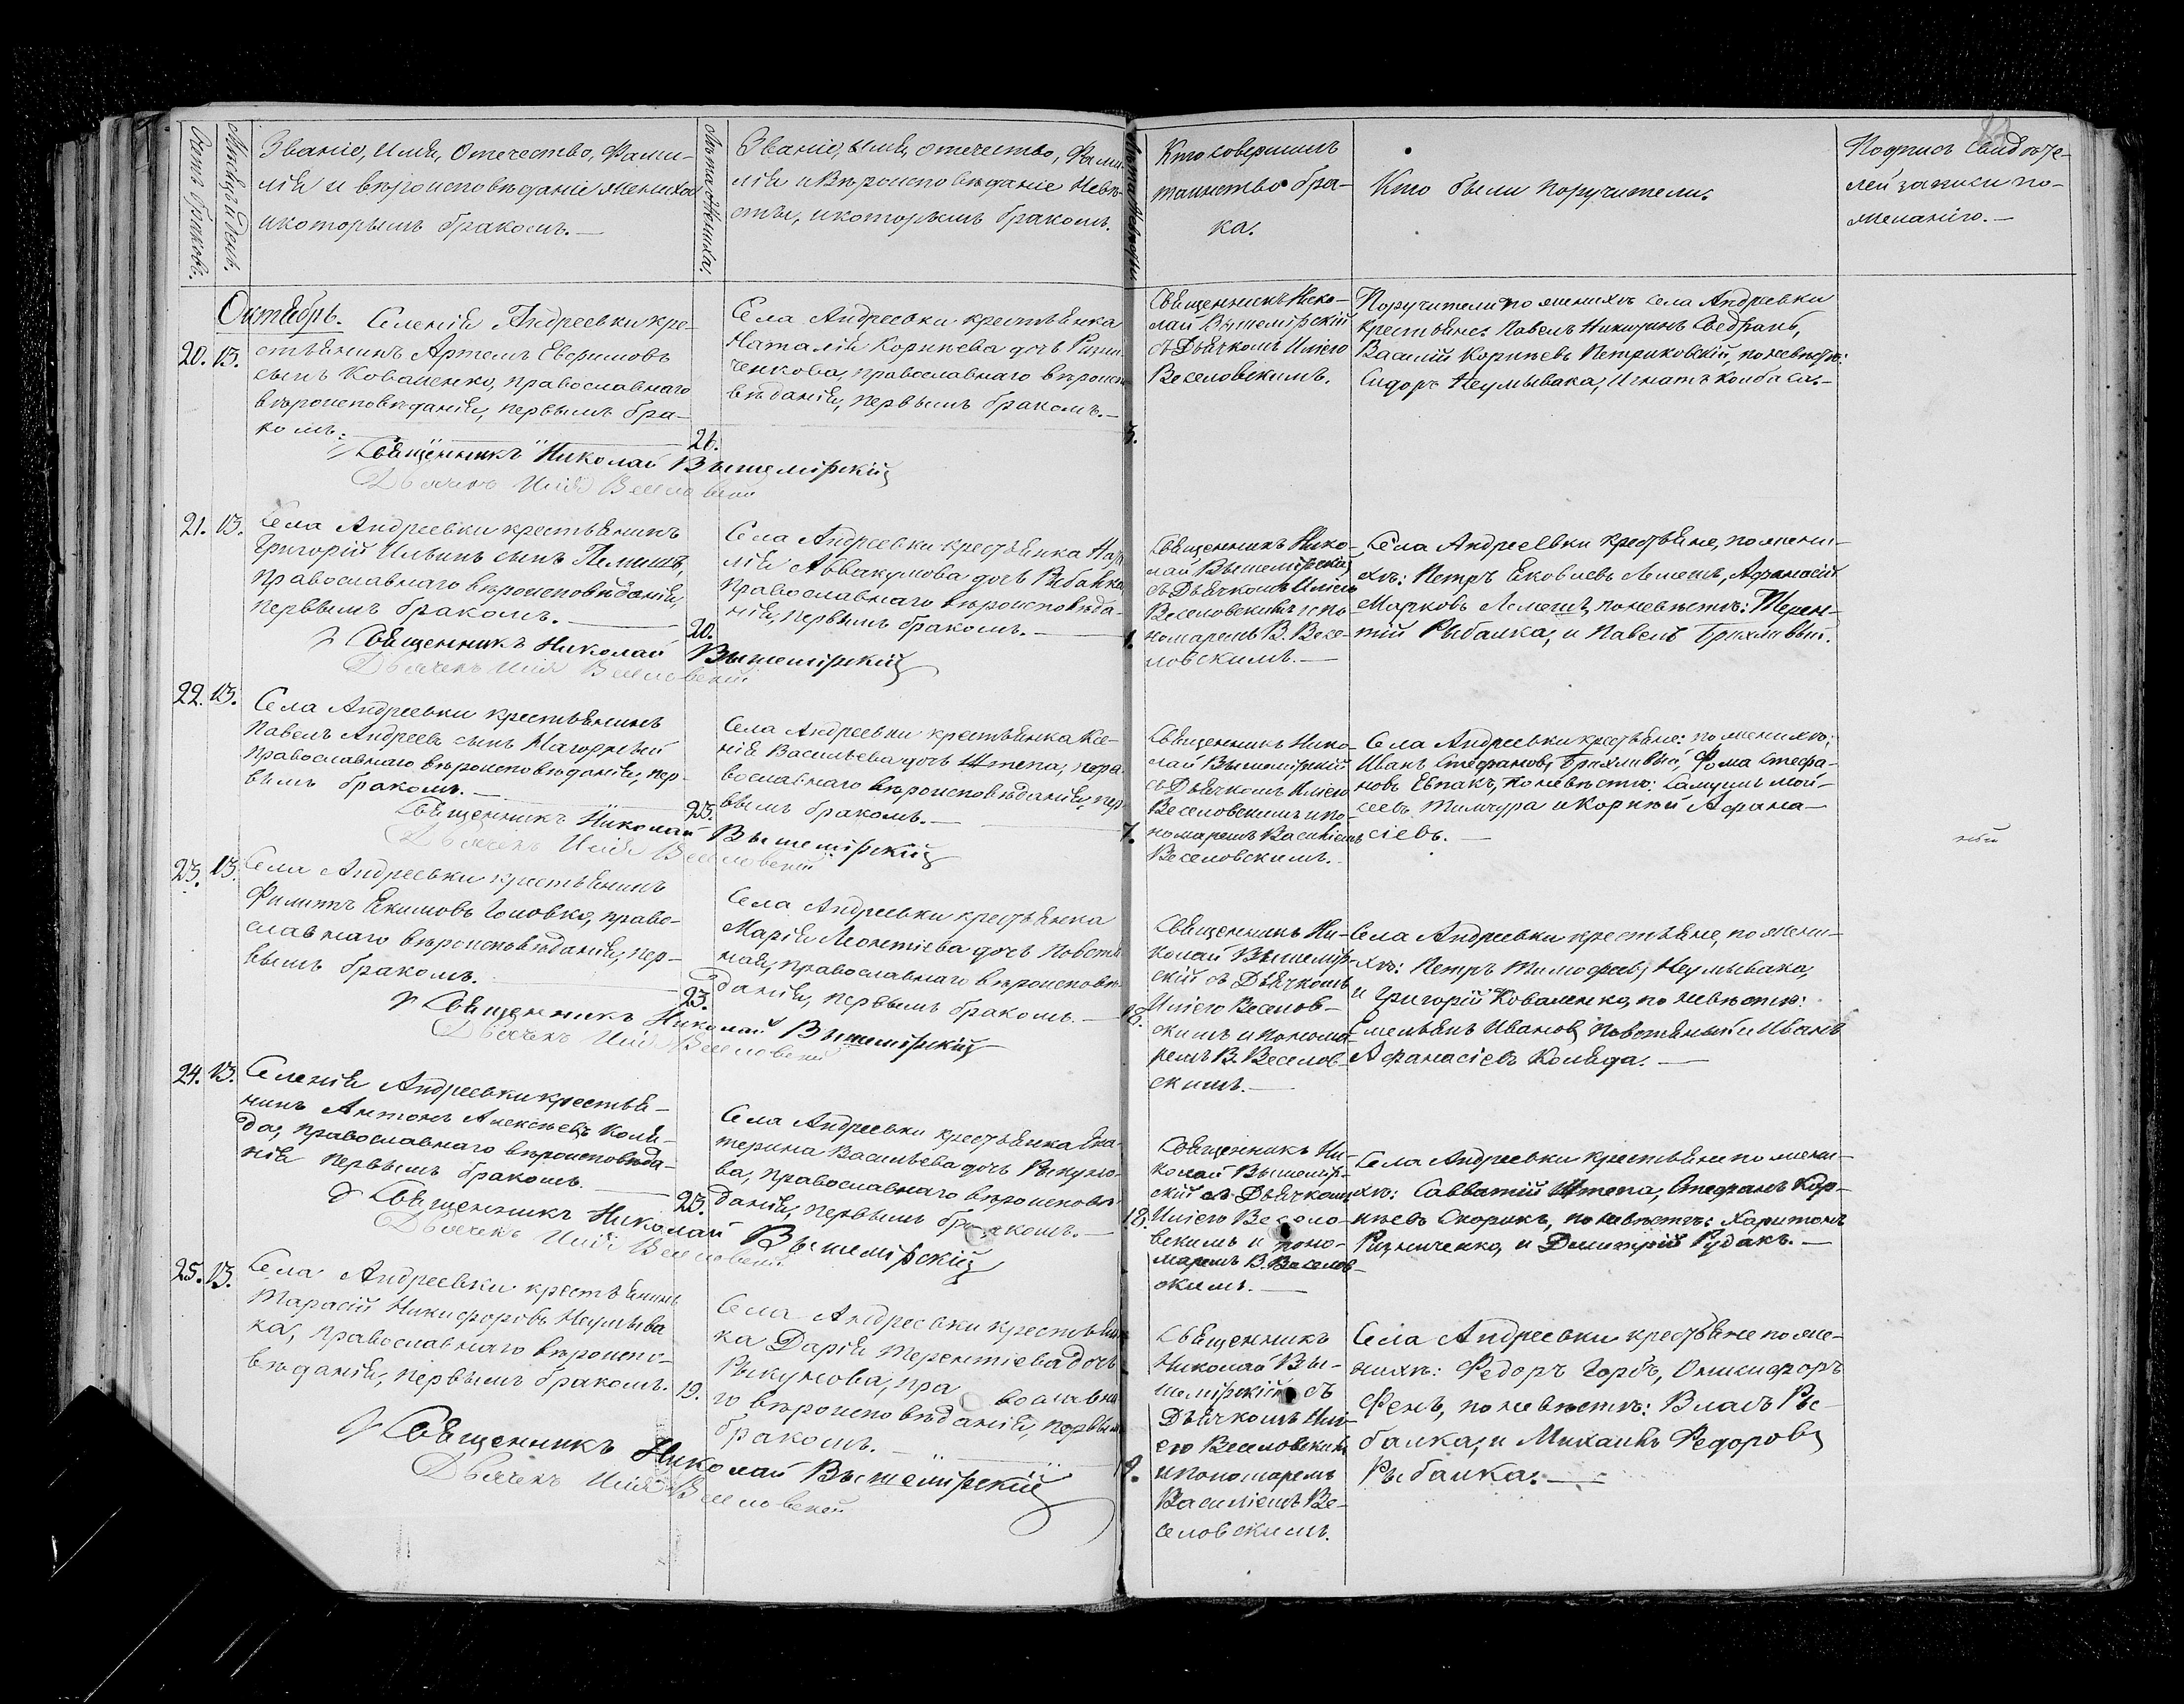 Счетъ браковъ.
Мѣсяцъ и день.
Званіе, Имя, Отечество, Фами-
лія и вѣроисповѣданіе жениха
и которымъ бракомъ.—
Лѣта жениха.
Званіе, имя, отечество, Фами-
лія и Вѣроисповѣданіе Невѣ-
сты, и которымъ бракомъ.
Лѣта Невѣсты.
Кто совершилъ
таинство бра-
ка.
Кто были поручители.
Подпись свидѣте-
лей записи по-
желанію.—
Октябрь.
20. 13.
Селенія Андреевки кре-
стьянинъ Артемъ Евфимовъ
сынъ Коваленко, православнаго
вѣроисповѣданія, первымъ бра-
комъ.
21.
Села Андреевки крестьянка
Наталія Корнѣева дочь Ризни-
ченкова, православнаго вѣроиспо
вѣданія, первымъ бракомъ.—
Священникъ Нико-
лай Вышемірскій
съ Дьячкомъ Иліею
Веселовскимъ.
Поручители по женихѣ села Андреевки
крестьяне: Павелъ Никитинъ
Василій Корнѣевъ Петриковскій, по невѣстѣ:
Сидоръ Неумывака, Игнатъ Колбаса.—
Священникъ Николай Вышемірскій
Дьячекъ Илія Веселовскій
21. 13.
Села Андреевки крестьянинъ
Григорій Ильинъ сынъ Лемишъ,
православнаго вѣроисповѣданія,
первымъ бракомъ.—
20.
Села Андреевки крестьянка
лія Аввакумова дочь Рибалка
православнаго вѣроисповѣда-
нія, первымъ бракомъ.—
Священникъ Нико-
лай Вышемірскій
съ Дьячкомъ Иліею
Веселовскимъ и по-
номаремъ В. Весе-
ловскимъ.—
Села Андреевки крестьяне, по жени-
хѣ: Петръ Яковлевъ Лемешъ, Афанасій
Марковъ Лемешъ, по невѣстѣ: Терен-
тій Рыбалка, и Павелъ Брихливый.
Священникъ Николай Вышемірскій
Дьячекъ Илія Веселовскій
22. 13.
Села Андреевки крестьянинъ
Павелъ Андреевъ сынъ
православнаго вѣроисповѣданія, пер-
вымъ бракомъ.—
23.
Села Андреевки крестьянка Ксе-
нія Васильева дочь Штепа, пра-
вославнаго вѣроисповѣданія, пер-
вымъ бракомъ.—
7.
Священникъ Нико-
лай Вышемірскій
съ Дьячкомъ Иліею
Веселовскимъ и по-
номаремъ Василіемъ
Веселовскимъ.
Села Андреевки крестьяне: по женихѣ:
Иванъ Стефановъ Брихливый, Фома Стефа-
новъ Евпакъ, по невѣстѣ: Самуилъ Мой-
сеевъ Тимчура и Корній Афана-
сіевъ.—
Священникъ Николай Вышемірскій
Дьячекъ Илія Веселовскій
23. 13.
Села Андреевки крестьянинъ
Филиппъ Екимовъ Головко, право-
славнаго вѣроисповѣданія, пер-
вымъ бракомъ.
23.
Села Андреевки крестьянка
Марія Леонтіева дочь Повстя-
ная, православнаго вѣроисповѣ-
данія, первымъ бракомъ.—
18.
Священникъ Ни-
колай Вышемір-
скій съ Дьячкомъ
Иліею Веселов-
скимъ и понома-
ремъ В. Веселов-
скимъ.—
Села Андреевки крестьяне, по жени-
хѣ: Петръ Тимофеевъ Неумывака,
и Григорій Коваленко, по невѣстѣ:
Емельянъ Ивановъ Повстяный и Иванъ
Афанасіевъ Коляда.—
Священникъ Николай Вышемірскій
Дьячекъ Илія Веселовскій
24. 13.
Селенія Андреевки крестья-
нинъ Антонъ Алексѣевъ Коля-
да, православнаго вѣроисповѣда-
нія первымъ бракомъ.
23.
Села Андреевки крестьянка Ека-
терина Васильева дочь Рыкуно-
ва, православнаго вѣроисповѣ-
данія, первымъ бракомъ.—
18.
Священникъ Ни-
колай Вышемір-
скій съ Дьячкомъ
Иліею Весело-
вскимъ и поно-
маремъ В. Веселов-
скимъ.—
Села Андреевки крестьяне по жени-
хѣ: Савватій Штепа, Стефанъ Кор-
нѣевъ Скорикъ, по невѣстѣ: Харитонъ
Ризниченко, и Дмитрій Рудакъ.—
Священникъ Николай Вышемірскій
Дьячекъ Илія Веселовскій
25. 13.
Села Андреевки крестьянинъ
Тарасій Никифоровъ Неумыва
ка, православнаго вѣроиспо-
вѣданія, первымъ бракомъ.
19.
Села Андреевки крестьян
ка Дарія Терентіева дочь
Рыкунова, православна
го вѣроисповѣданія, первым
бракомъ.—
19.
Священникъ
Николай Вы-
шемірскій съ
Дьячкомъ Илі-
ею Веселовскимъ
и пономаремъ
Василіемъ Ве-
селовскимъ.
Села Андреевки крестьяне по же-
нихѣ: Федоръ Горбъ, Онисифоръ
Фень, по невѣстѣ: Власъ Ры-
балка, и Михаилъ Федоровъ
Рыбалка.—
Священникъ Николай Вышемірскій
Дьячекъ Илія Веселовскій